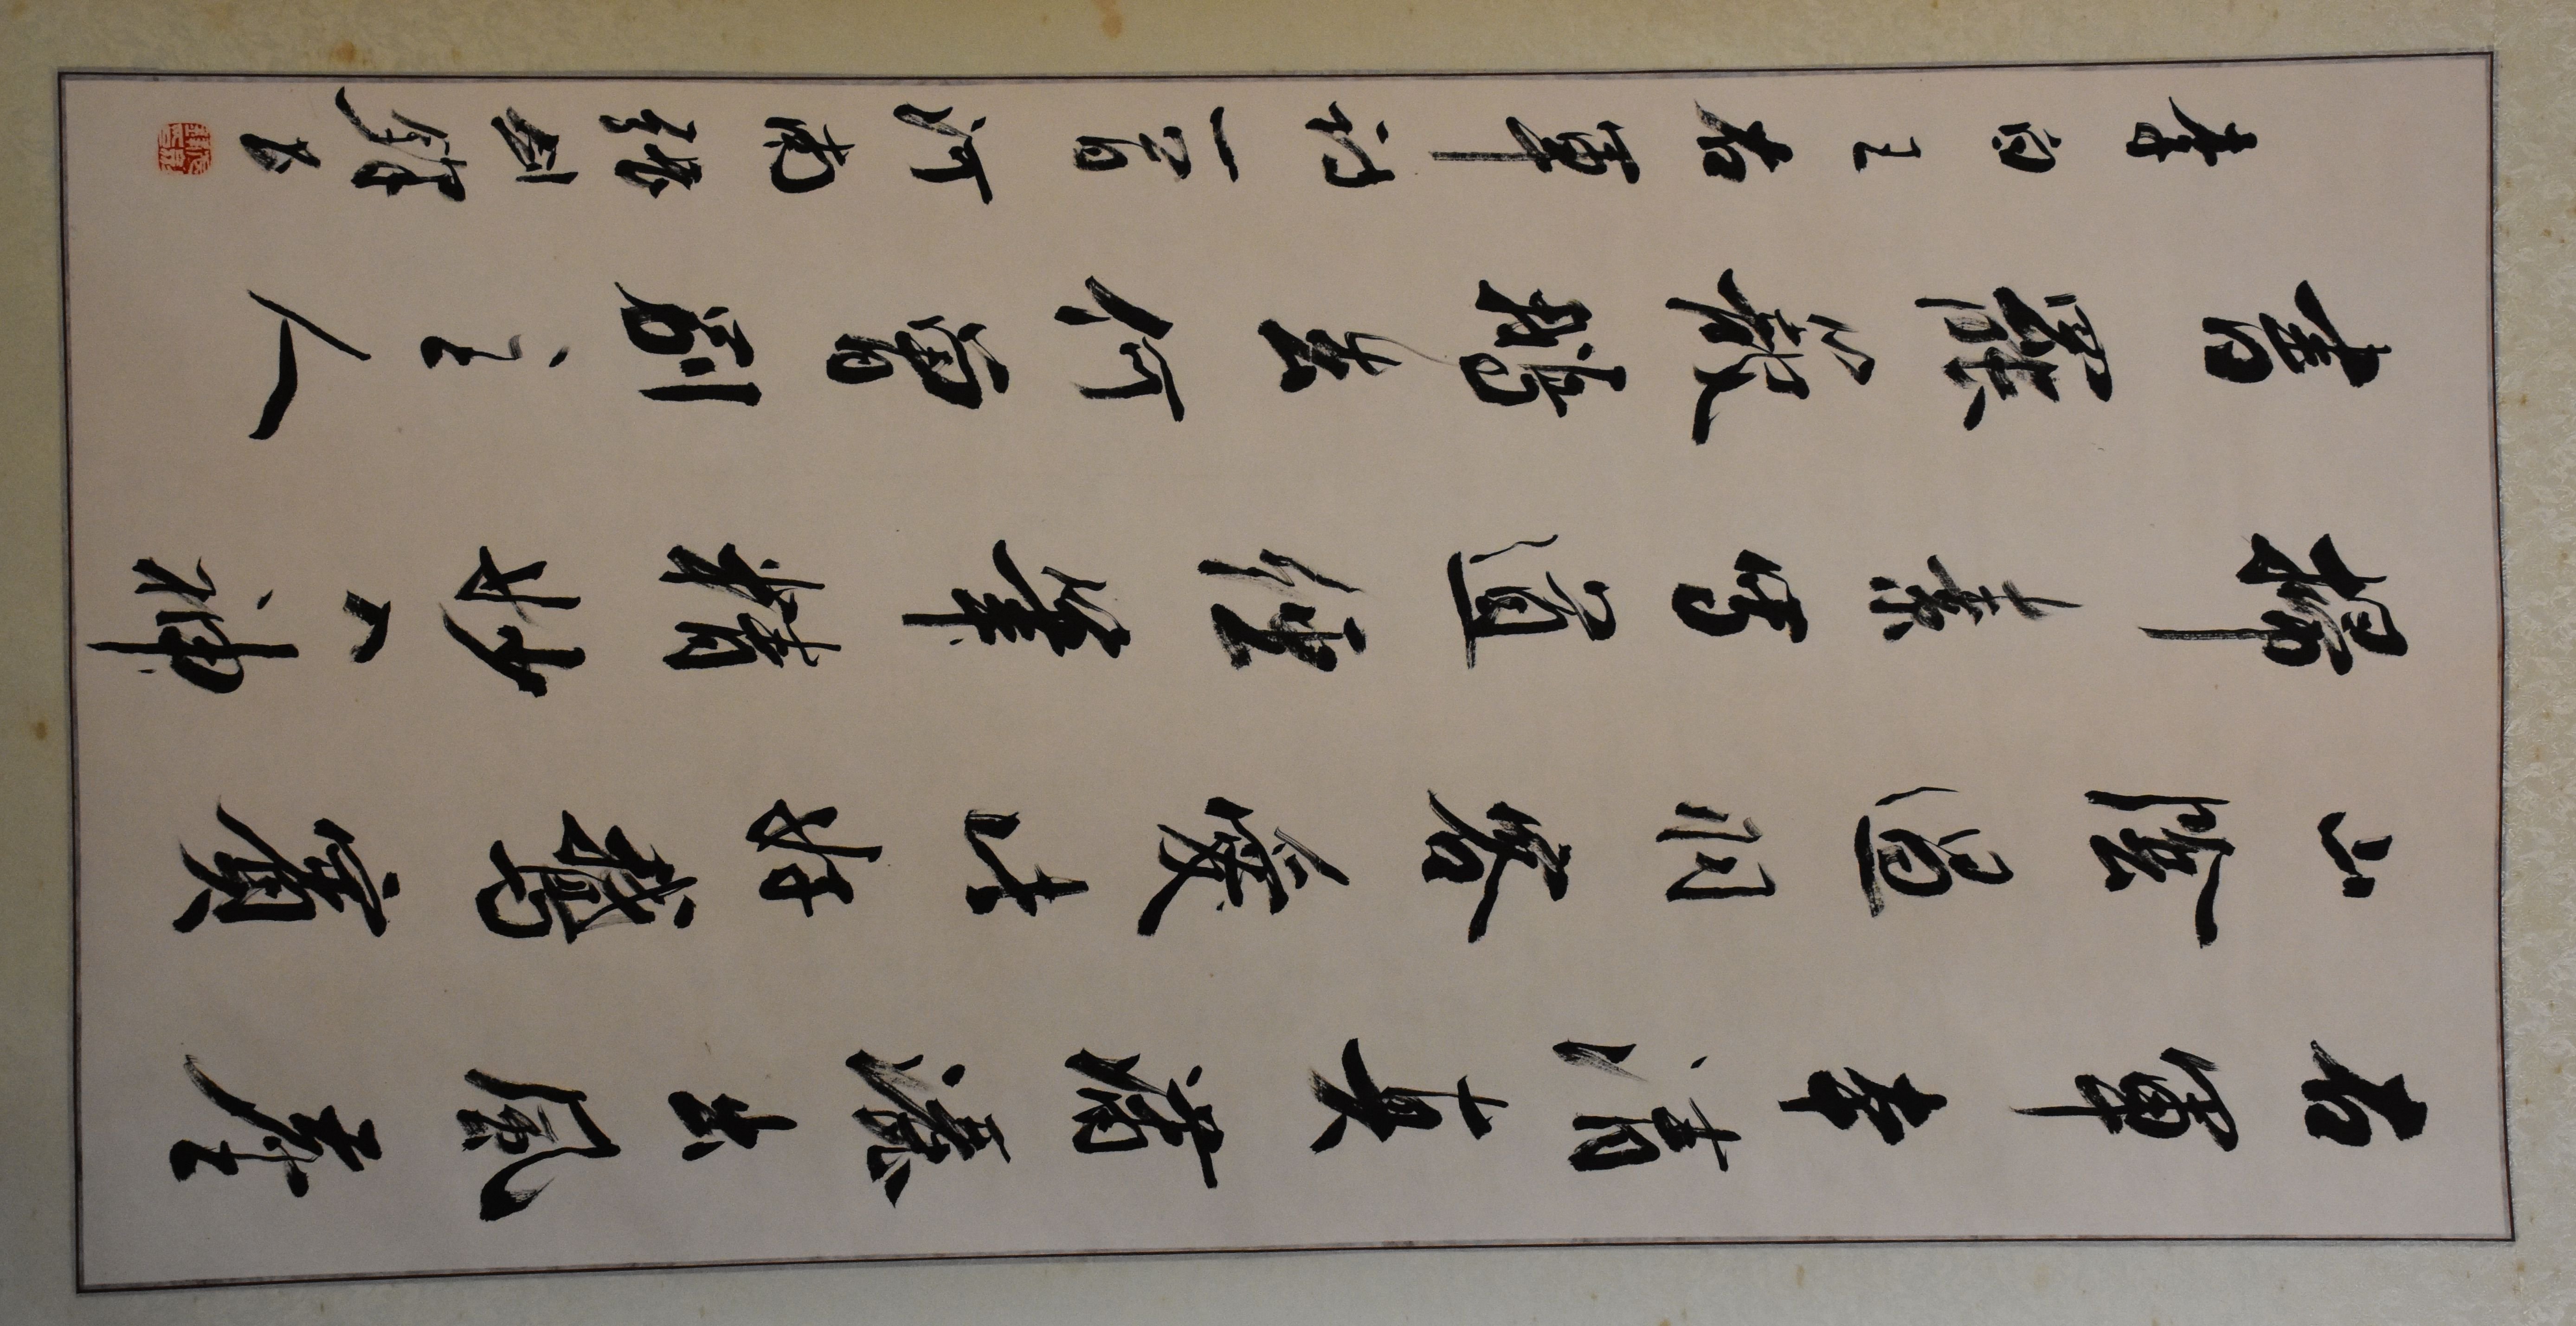 右軍本清真瀟灑出風塵
山陰過羽客愛此好鵝賓
掃素寫道經筆精妙入神
書罷籠鵝去何曾別主人
李白王右軍詩一首河南張劍鋒書